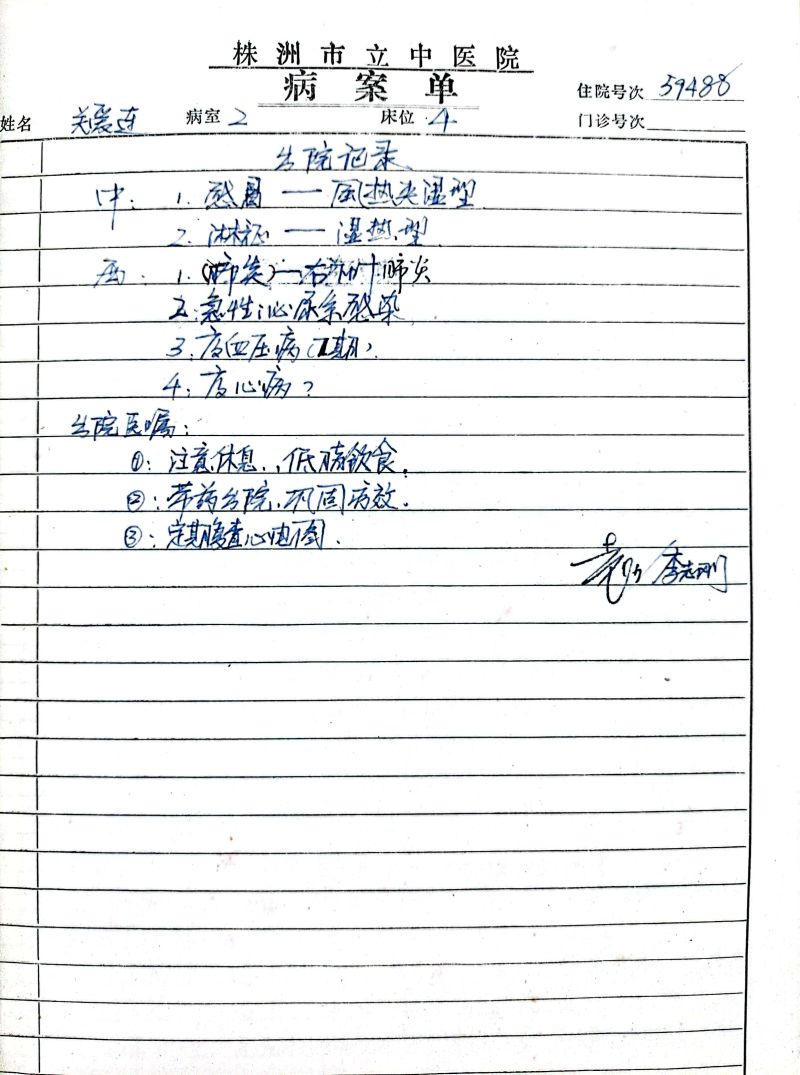 株洲市立中医院
病案单
住院号次 59488
姓名 关爱连 病室 2 床位 4 门诊号次
出院记录
中: 1. 感冒 — 风热夹湿型
2. 淋症 — 湿热型
西: 1. (肺炎) 肺炎
2. 急性泌尿系感染
3. 高血压病(Ⅱ期).
4. 高心病?
出院医嘱:
①: 注意休息, 低脂饮食.
②: 带药出院, 巩固疗效.
③: 定期复查心电图.
李志刚